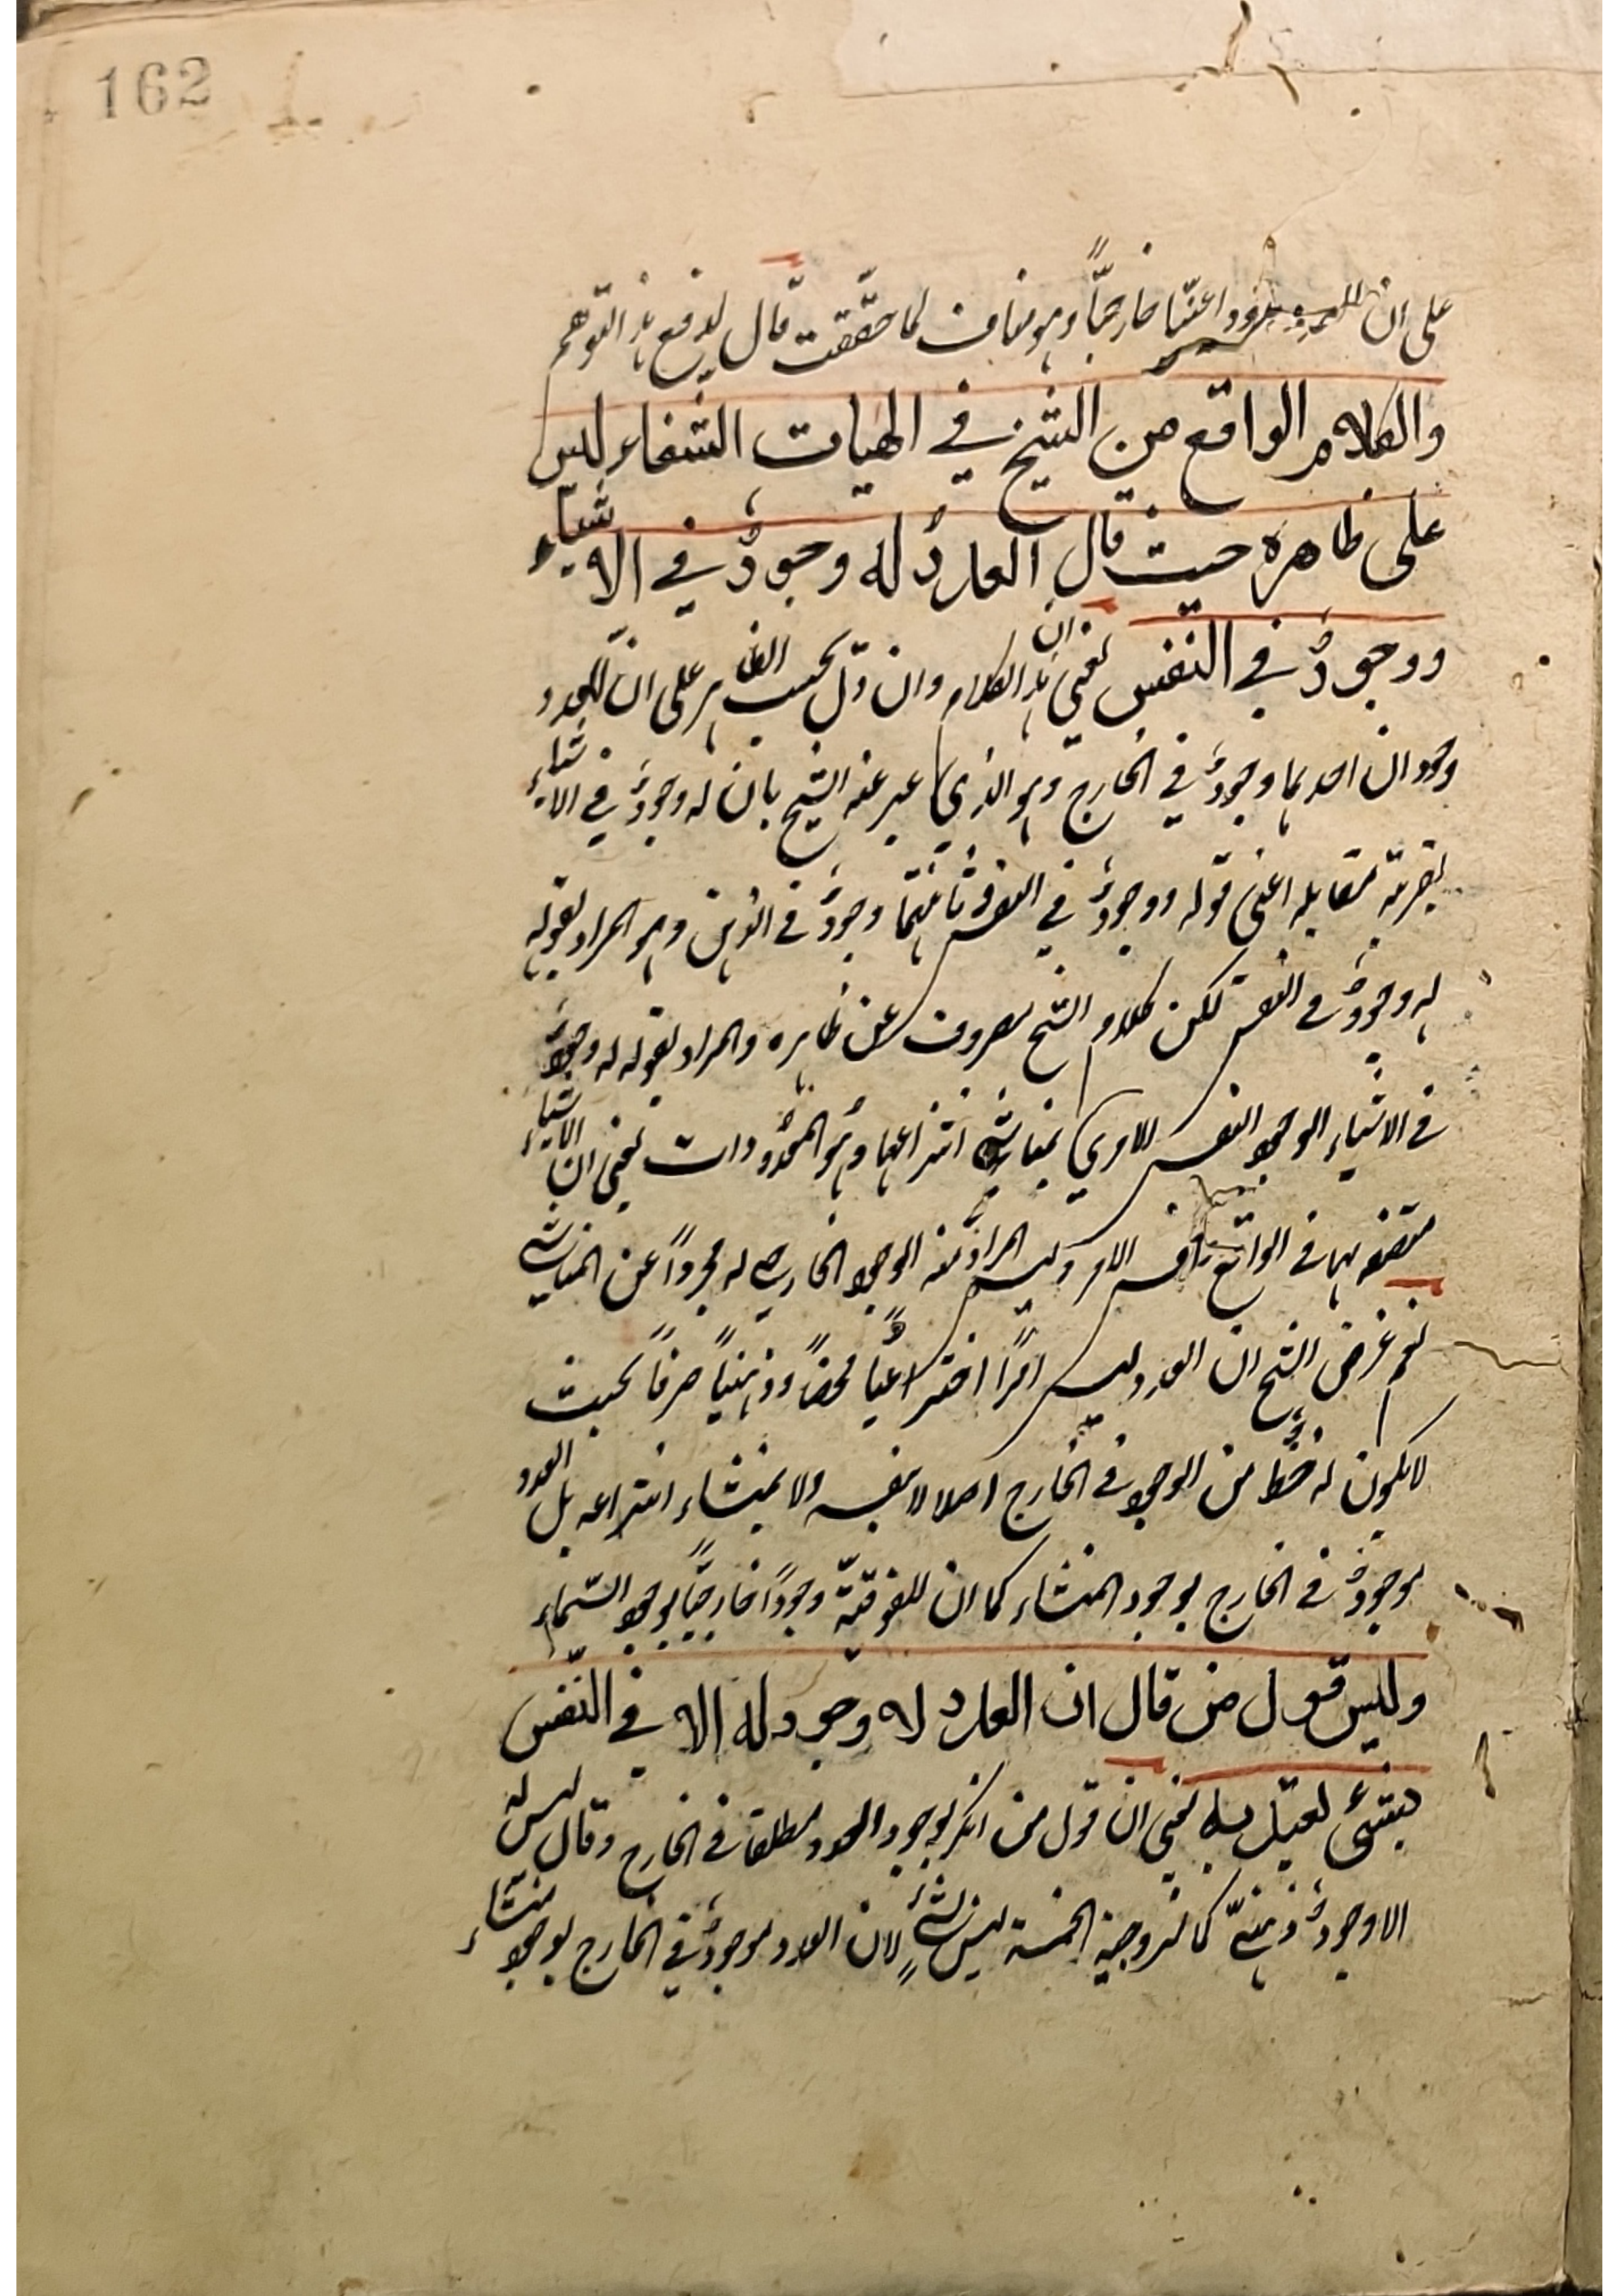 162
على ان للعدد وجودا عينيا خارجيًّا وهو مناف لما حقّقت قال لدفع هذا التوهم
والكلام الواقع من الشيخ في الهيات الشفاء ليس
على ظاهره حيث قال العددُ له وجودٌ في الاشياء
ووجودٌ في النفس يعني ان هذا الكلام وان دلّ بحسب الظاهر على انّ للعدد
وجودان احدهما وجودٌ في الخارج وهو الذي عبر عنه الشيخ بان له وجودٌ في الاشياء
بقرينة مقابله اعنى قوله ووجودٌ في النفس وثانيهما وجودٌ في الذهن وهو المراد بقوله
له وجودٌ في النفس لكن كلام الشيخ مصروف عن ظاهره والمراد بقوله له وجودٌ
في الاشياء الوجود النفس الامري بمناشي انتزاعها وهو المعدودات يعني ان الاشياء
متصفه بها في الواقع ونفس الامر وليس المراد منه الوجود الخارجي له مجرداً عن المناشي
نعم غرض الشيخ ان العدد ليس امراً اختراعيًّا محضاً وذهنياً صرفاً بحيث
لا يكون له حظٌ من الوجود في الخارج اصلا لا بنفسه ولا بمنشاء انتزاعه بل العدد
موجودٌ في الخارج بوجود المنشاء كما ان للفوقيّة وجوداً خارجيًّا بوجود السّماء
وليس قول من قال ان العدد لا وجود له الا في النّفس
بشئ يعتد به يعني ان قول من انكر لوجود العدد مطلقا في الخارج وقال ليس له
الا وجودٌ ذهنيّ كالزوجية الخمسة ليس بشئٍ لان العدد موجودٌ في الخارج بوجود منشاء